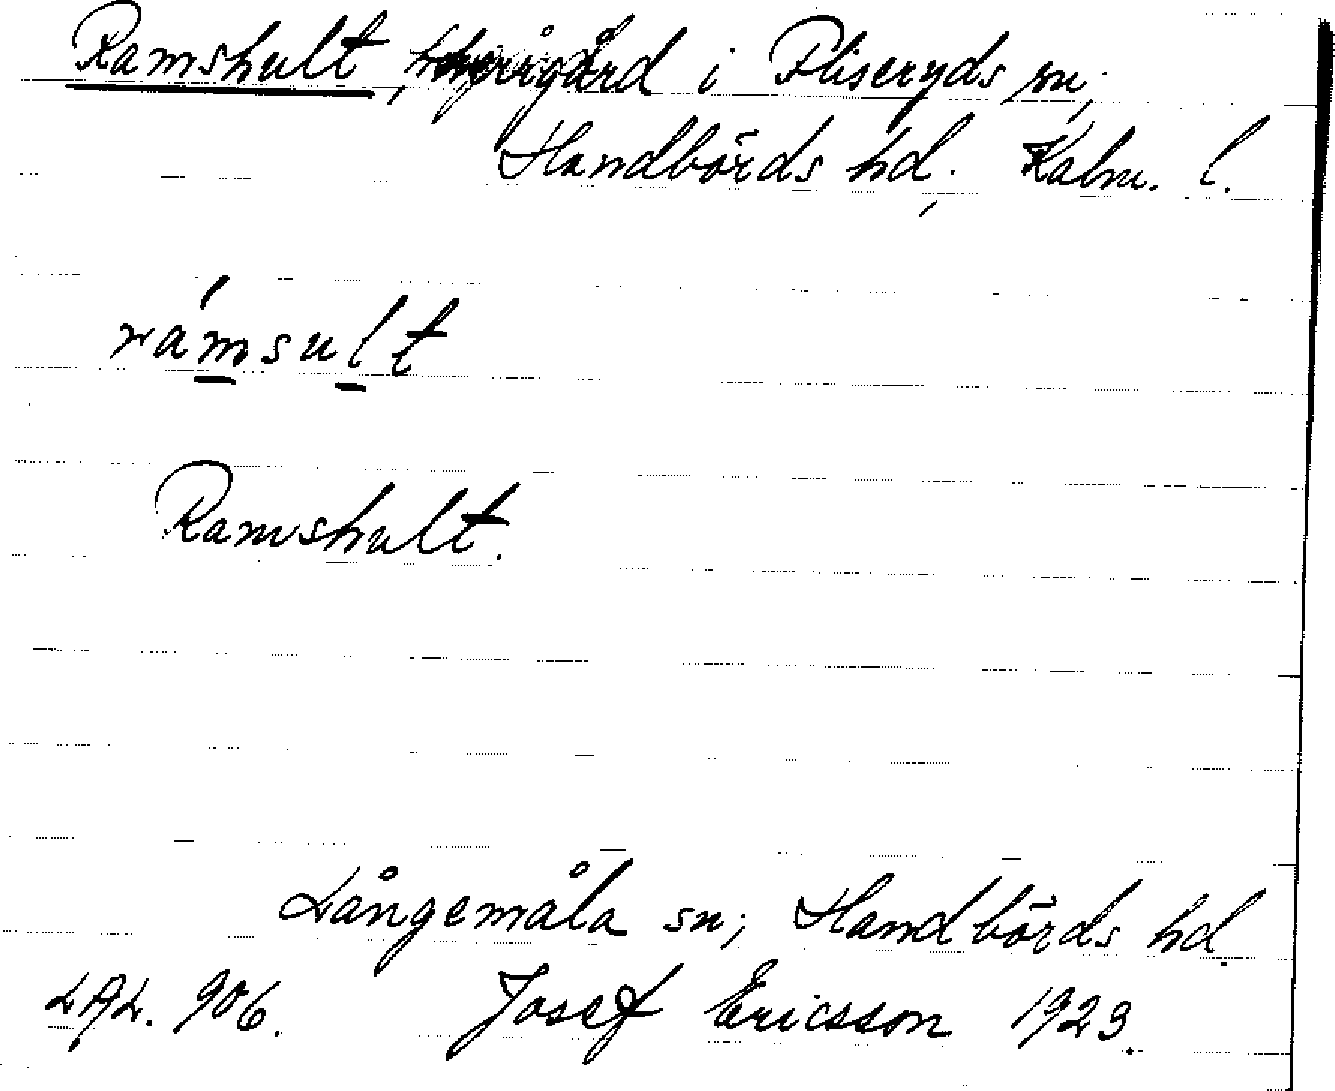 Ramshult, gård i Fliseryds sn,
Handbörds hd. Kalm. l.
rámsult
Ramshult.
Långemåla sn; Handbörds hd.
LAL. 906. Josef Ericsson 1923.